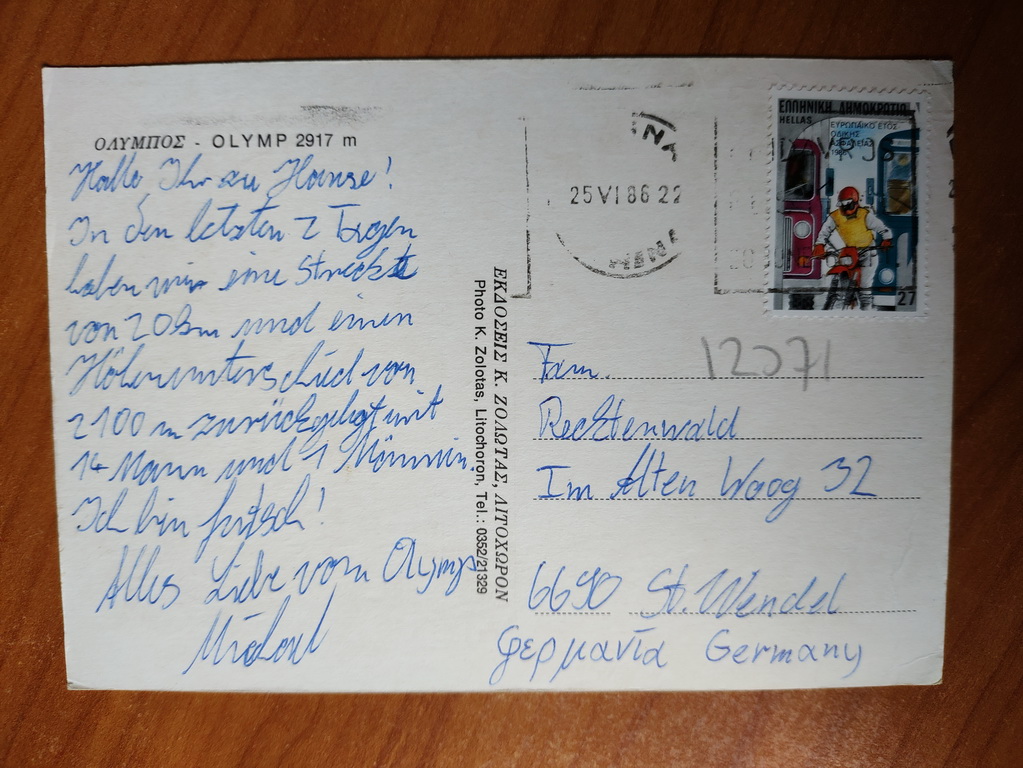 ΟΛΥΜΠΟΣ - OLYMP 2917 m
Hallo Ihr zu Hause!
In den letzten 2 Tagen
haben wir eine Strecke
von 20 km und einen
Höhenunterschied von
2100 m zurückgelegt mit
14 Mann und 1 Männin.
Ich bin futsch!
Alles Liebe vom Olymp
Michael
ΕΚΔΟΣΕΙΣ Κ. ΖΟΛΩΤΑΣ, ΛΙΤΟΧΩΡΟΝ
Photo K. Zolotas, Litochoron, Tel.: 0352/21329
25 VI 86 22
ΕΛΛΗΝΙΚΗ ΔΗΜΟΚΡΑΤΙΑ
HELLAS
ΕΥΡΩΠΑΪΚΟ ΕΤΟΣ
ΟΔΙΚΗΣ
ΑΣΦΑΛΕΙΑΣ
27
12071
Fam.
Recktenwald
Im Alten Woog 32
6690 St. Wendel
Γερμανία Germany